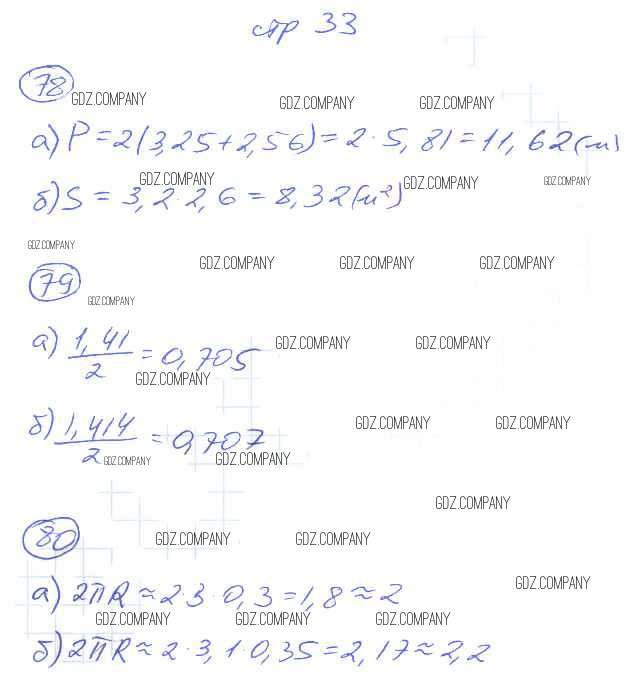 стр 33
78
GDZ.COMPANY GDZ.COMPANY GDZ.COMPANY
а) P = 2(3,25+2,56) = 2·5,81 = 11,62(м)
GDZ.COMPANY GDZ.COMPANY GDZ.COMPANY
б) S = 3,2·2,6 = 8,32(м²)
GDZ.COMPANY
GDZ.COMPANY GDZ.COMPANY GDZ.COMPANY
79
GDZ.COMPANY
а) 1,41/2 = 0,705
GDZ.COMPANY GDZ.COMPANY
GDZ.COMPANY
б) 1,414/2 = 0,707
GDZ.COMPANY GDZ.COMPANY
GDZ.COMPANY GDZ.COMPANY
GDZ.COMPANY
80
GDZ.COMPANY GDZ.COMPANY
GDZ.COMPANY
а) 2πR ≈ 2·3·0,3 = 1,8 ≈ 2
GDZ.COMPANY GDZ.COMPANY GDZ.COMPANY
б) 2πR ≈ 2·3,1·0,35 = 2,17 ≈ 2,2